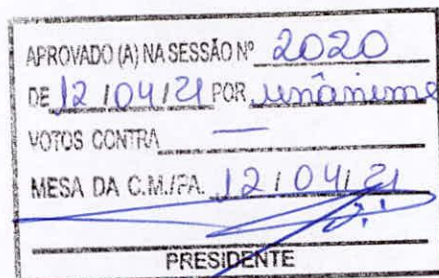 APROVADO (A) NA SESSÃO Nº 2020
DE 12 / 04 / 21 POR unânime
VOTOS CONTRA —
MESA DA C.M./PA. 12 / 04 / 21
PRESIDENTE